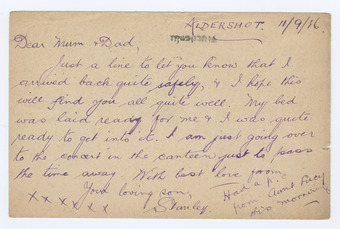 ALDERSHOT. 11/9/16.
Dear Mum & Dad,
Just a line to let you know that I
arrived back quite safely, & I hope this
will find you all quite well. My bed
was laid ready for me & I was quite
ready to get into it. I am just going over
to the concert in the canteen just to pass
the time away. With best love from
Your loving son,
Stanley.
x x x x x x
Had a p.c.
from Aunt
this morning